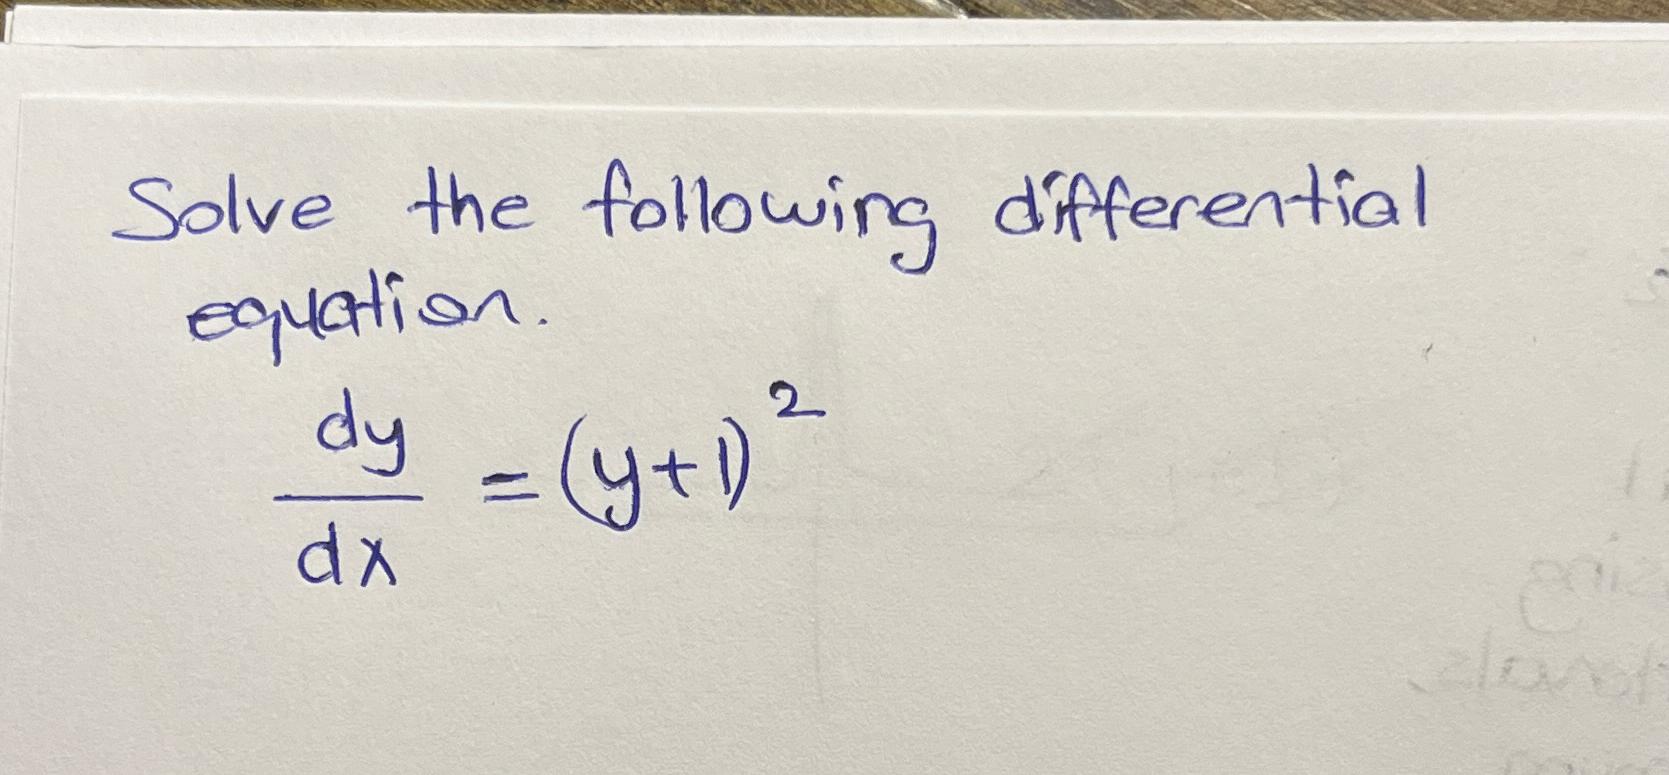 Solve the following differential
equation.
dy/dx = (y+1)²